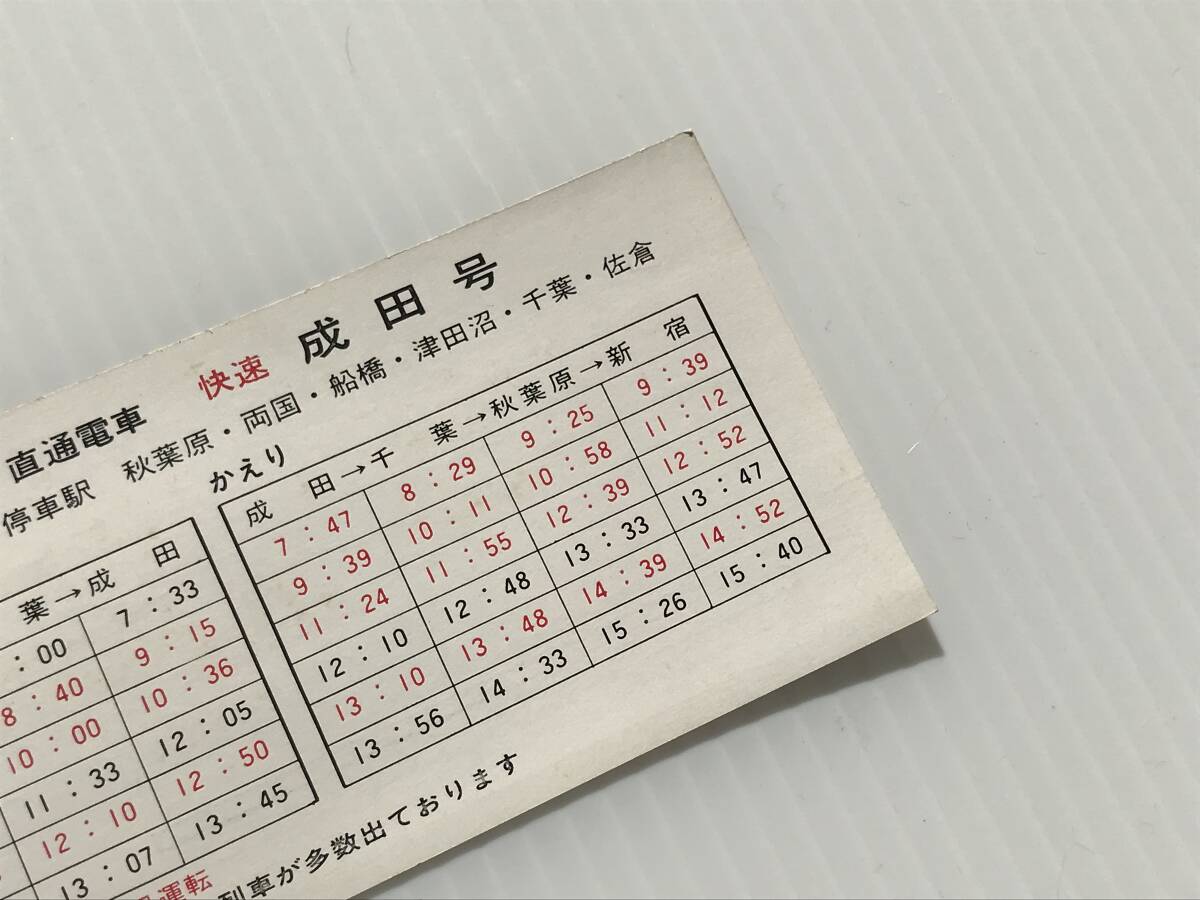 直通電車 快速 成田号
停車駅 秋葉原・両国・船橋・津田沼・千葉・佐倉
かえり
葉→成田
:00 7:33
8:40 9:15
10:00 10:36
11:33 12:05
12:10 12:50
13:07 13:45
成田→千葉→秋葉原→新宿
7:47 8:29 9:25 9:39
9:39 10:11 10:58 11:12
11:24 11:55 12:39 12:52
12:10 12:48 13:33 13:47
13:10 13:48 14:39 14:52
13:56 14:33 15:26 15:40
運転
列車が多数出ております